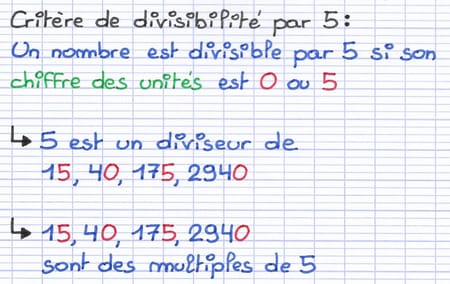 Critère de divisibilité par 5:
Un nombre est divisible par 5 si son
chiffre des unités est 0 ou 5
↳ 5 est un diviseur de
15, 40, 175, 2940
↳ 15, 40, 175, 2940
sont des multiples de 5